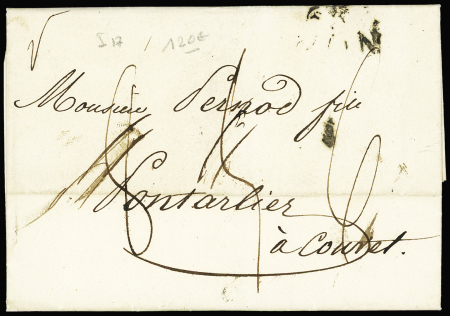 S 17 / 120€
Monsieur Pernod fils
Pontarlier
à Couvet.